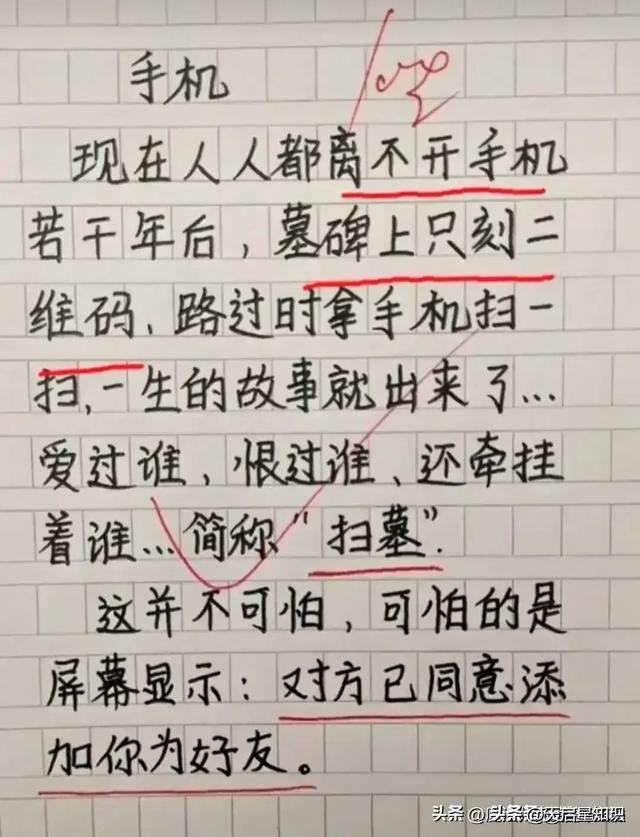 手机
现在人人都离不开手机
若干年后，墓碑上只刻二
维码、路过时拿手机扫一
扫,一生的故事就出来了...
爱过谁、恨过谁、还牵挂
着谁...简称"扫墓".
这并不可怕，可怕的是
屏幕显示：对方已同意添
加你为好友。